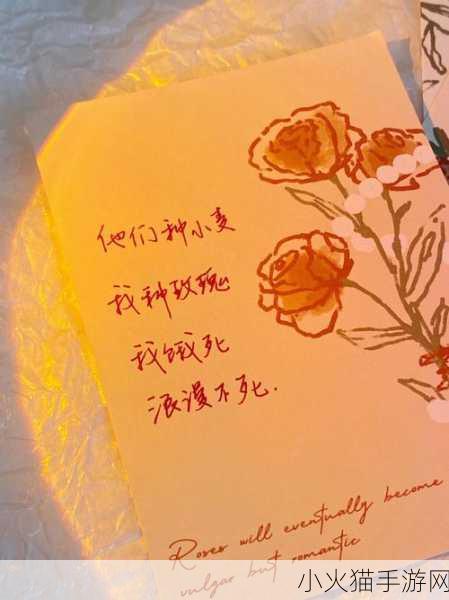 他们种小麦
我种玫瑰
我饿死
浪漫不死.
Roses will eventually become
vulgar but romantic
小火猫手游网